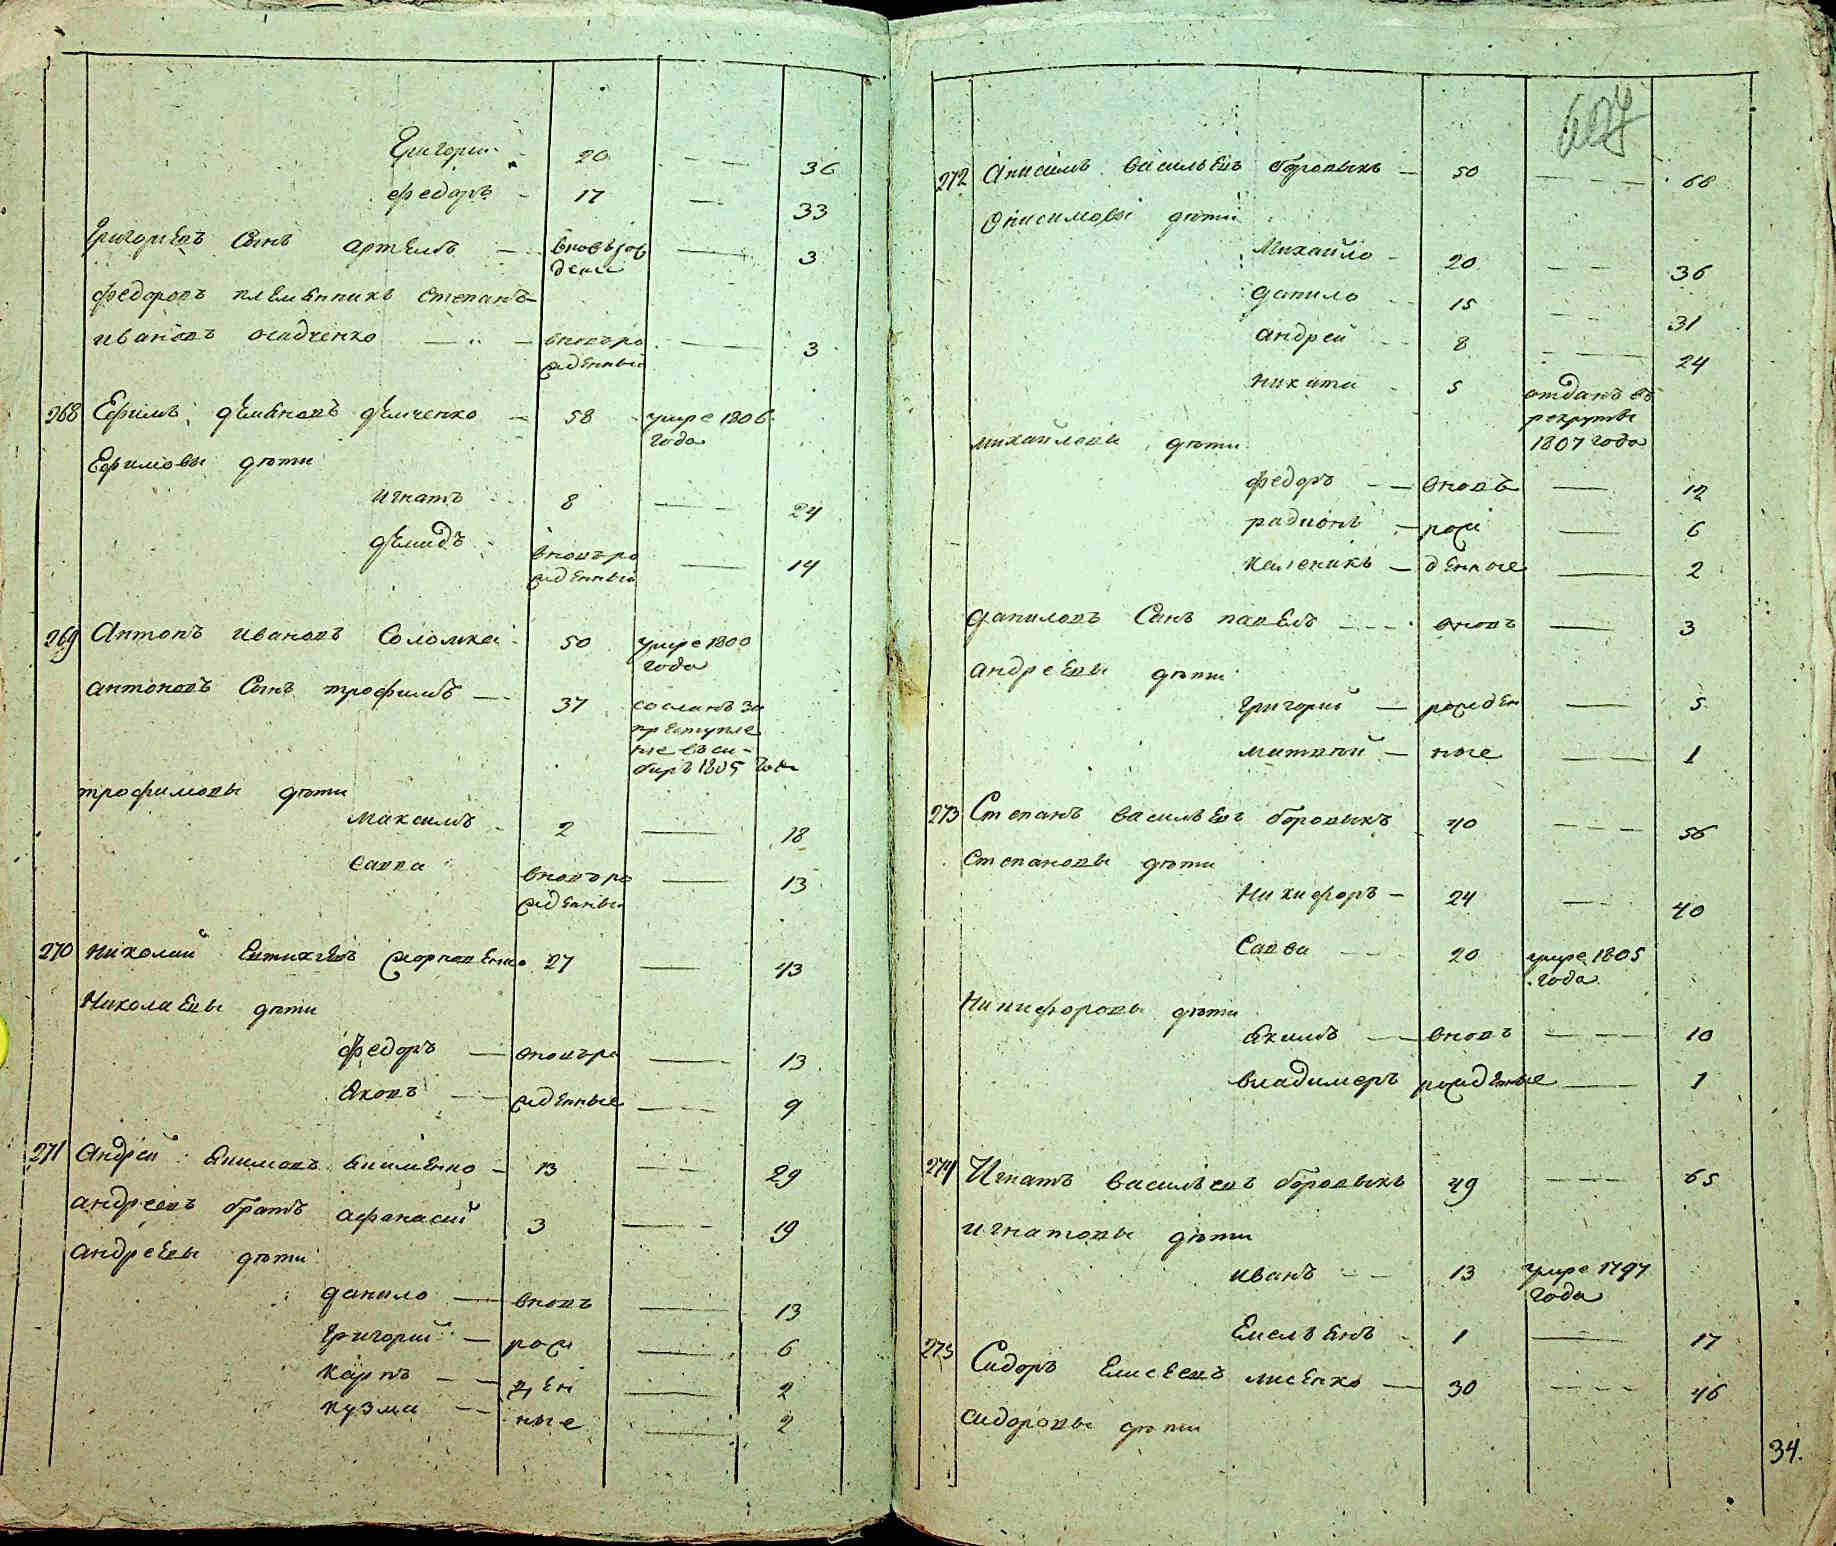 Григорий 20 — — 36
Федоръ - 17 — 33
Григорьевъ Сынъ Артемъ — вновь рож — 3
денн
Федоровъ племянникъ Степанъ
Ивановъ Осадченко — вновь ро — 3
жденный
268 Ефимъ Демьяновъ Демченко - 58 умре 1806
года
Ефимовы дѣти
Игнатъ 8 — 24
Демидъ вновь ро — 14
жденный
269 Антонъ Ивановъ Соломка 50 умре 1800
года
Антоновъ Сынъ Трофимъ — 37 сосланъ за
преступле
ние въ си-
бирь 1805 года
Трофимовы дѣти
Максимъ 2 — 18
Савва вновь ро — 13
жденный
270 Николай Евтихіевъ 27 — 43
Николаевы дѣти
Федоръ — вновь ро — 13
Яковъ — жденные — 9
271 Андрей Якимовъ Якименко - 13 — 29
Андреевъ братъ Афанасий 3 — 19
Андреевы дѣти
Данило — вновь — 13
Григорий — рож — 6
Карпъ — ден — 2
Кузма — ные — 2
607
272 Анисимъ Васильевъ Боровыкъ — 50 — — — 66
Онисимовы дѣти
Михайло - 20 — — 36
Данило 15 — — 31
Андрей 8 — — 24
Никита 5 отданъ въ
рекруты
1807 года
Михайловы дѣти
Федоръ — вновь — 12
Радионъ — рож — 6
Каленикъ — денные — 2
Даниловъ Сынъ Павелъ — вновь — 3
Андреевы дѣти
Григорий — рожден — 5
Матвий — ные — 1
273 Степанъ Васильевъ Боровыкъ 40 — — — 56
Степановы дѣти
Никифоръ - 24 — 40
Савва — 20 умре 1805
года
Никифоровы дѣти
Якимъ — вновь — — 10
Владимеръ рожденные — 1
274 Игнатъ Васильевъ Боровыкъ 49 — — 65
Игнатовы дѣти
Иванъ — 13 умре 1797
года
Емельянъ 1 — 17
275 Сидоръ Елисеевъ Лисенко — 30 — — — 46
Сидоровы дѣти
34.